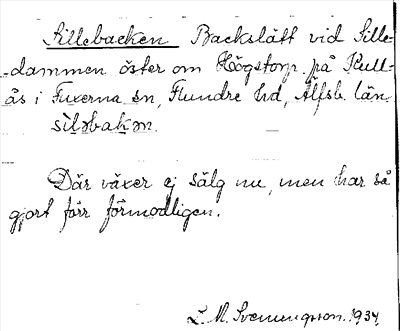 Sillebacken Backslätt vid Sille-
dammen öster om Högstorp på Kull-
ås i Fuxerna sn, Flundre hd, Älfsb. län.
sìləbakən.
Där växer ej sälg nu, men har så
gjort förr förmodligen.
L. M. Svenungsson. 1934.